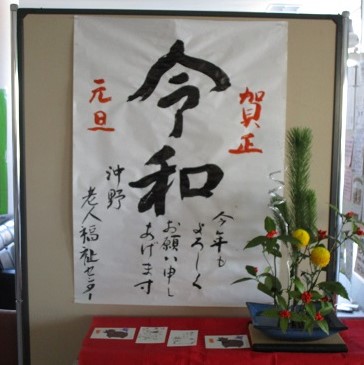 賀正
令和
元旦
今年も
よろしく
お願い申し
あげます
沖野
老人福祉センター